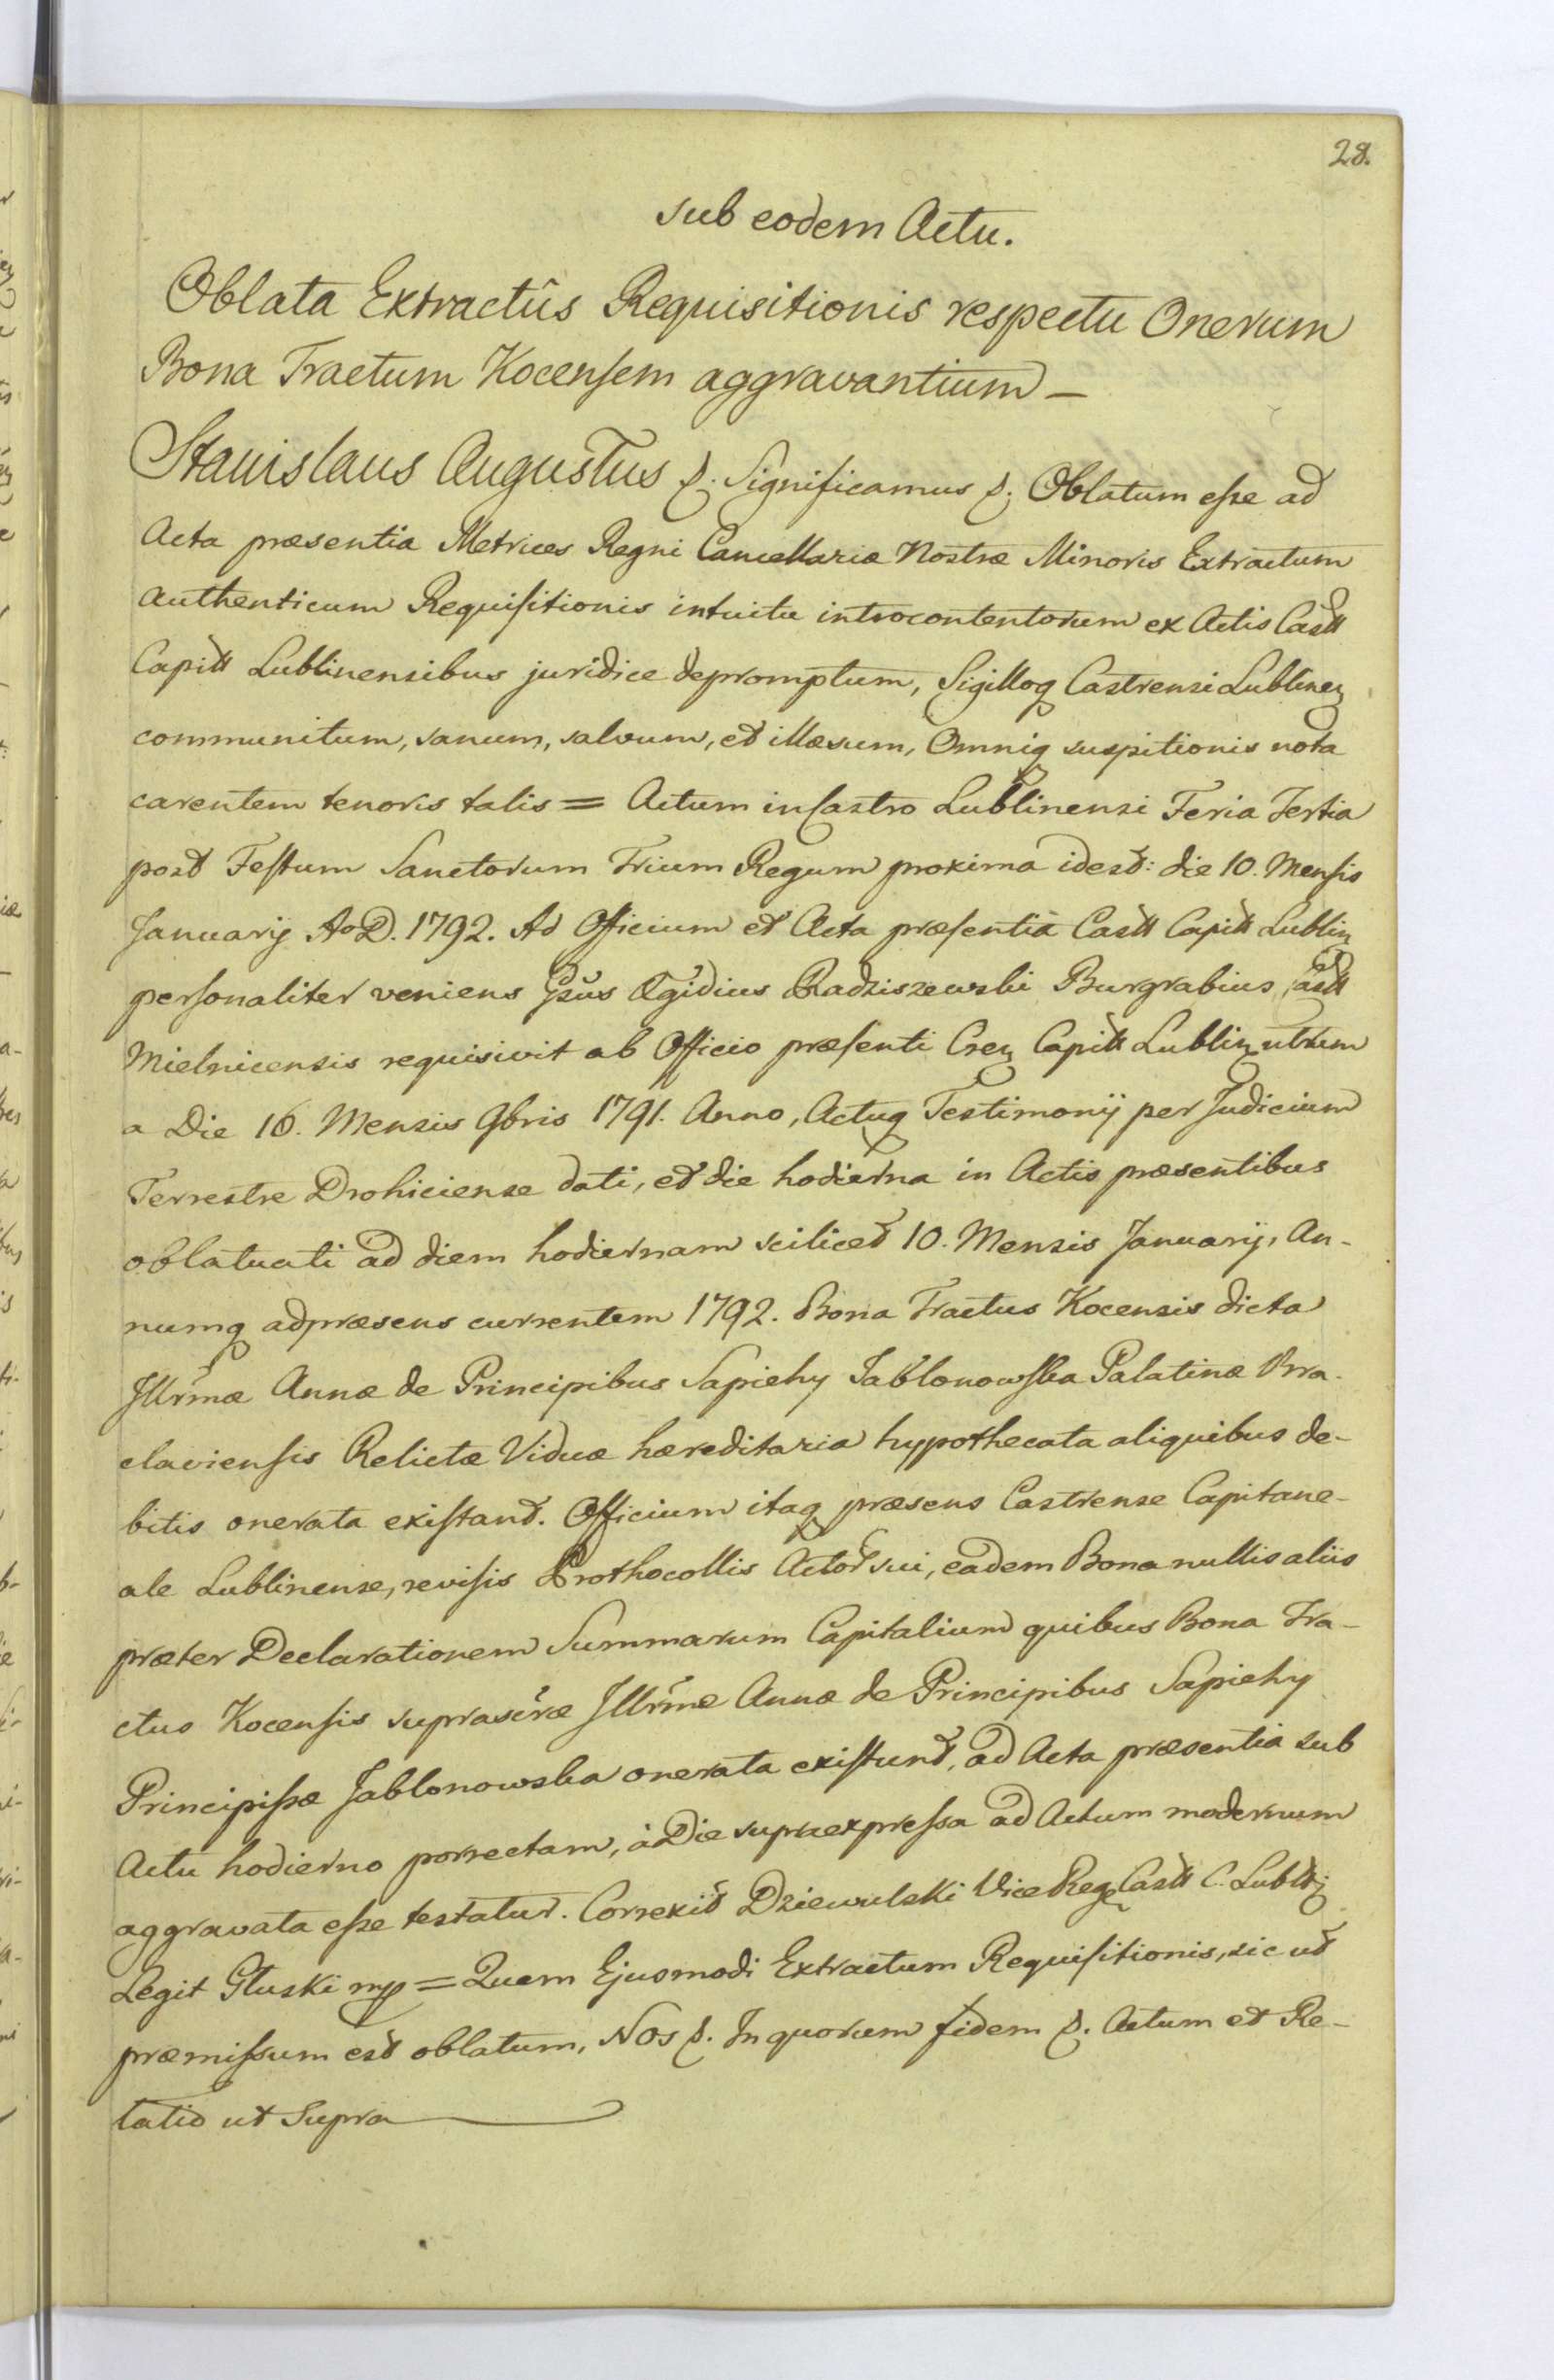 28.
sub eodem Actu.
Oblata Extractûs Requisitionis respectu Onerum
Bona Tractum Kocensem aggravantium —
Stanislaus Augustus &. Significamus &. Oblatum esse ad
Acta præsentia Metrices Regni Cancellariæ Nostræ Minoris Extractum
authenticum Requisitionis intuitu introcontentorum ex Actis Castr
Capitt Lublinensibus juridice depromptum, Sigilloq Castrensi Lublinen
communitum, sanum, salvum, et illæsum, Omniq suspitionis nota
carentem tenoris talis = Actum in Castro Lublinensi Feria Tertia
post Festum Sanctorum Trium Regum proxima idest: die 10. Mensis
Januarij AoD. 1792. Ad Officium et Acta præsentia Castr Capitt Lublin
personaliter veniens Gsus Ægidius Radziszewski Burgrabius Castr
Mielnicensis requisivit ab Officio præsenti Cren Capitt Lublin utrum
a Die 16. Mensis 9bris 1791. Anno, Actuq Testimonij per Judicium
Terrestre Drohiciense dati, et die hodierna in Actis præsentibus
oblatuati ad diem hodiernam scilicet 10. Mensis Januarij, An-
numq adpræsens currentem 1792. Bona Tractus Kocensis dicta
Jllrmæ Annæ de Principibus Sapiehy Jabłonowska Palatinæ Bra-
claviensis Relictæ Viduæ hæreditaria hypothecata aliquibus de-
bitis onerata existant. Officium itaq præsens Castrense Capitane-
ale Lublinense, revisis Prothocollis Actor sui, eadem Bona nullis aliis
præter Declarationem Summarum Capitalium quibus Bona Tra-
ctus Kocensis suprascræ Jllrmæ Annæ de Principibus Sapiehy
Principissæ Jablonowska onerata existunt, ad Acta præsentia sub
Actu hodierno porrectam, à Die supraexpressa ad Actum modernum
aggravata esse testatur. Correxit Dziewulski Vice Reg Castr C. Lubl
Legit Głuski mp = Quem Ejusmodi Extractum Requisitionis, sic ut
præmissum est oblatum, Nos &. In quorum fidem &. Actum et Re-
latio ut Supra